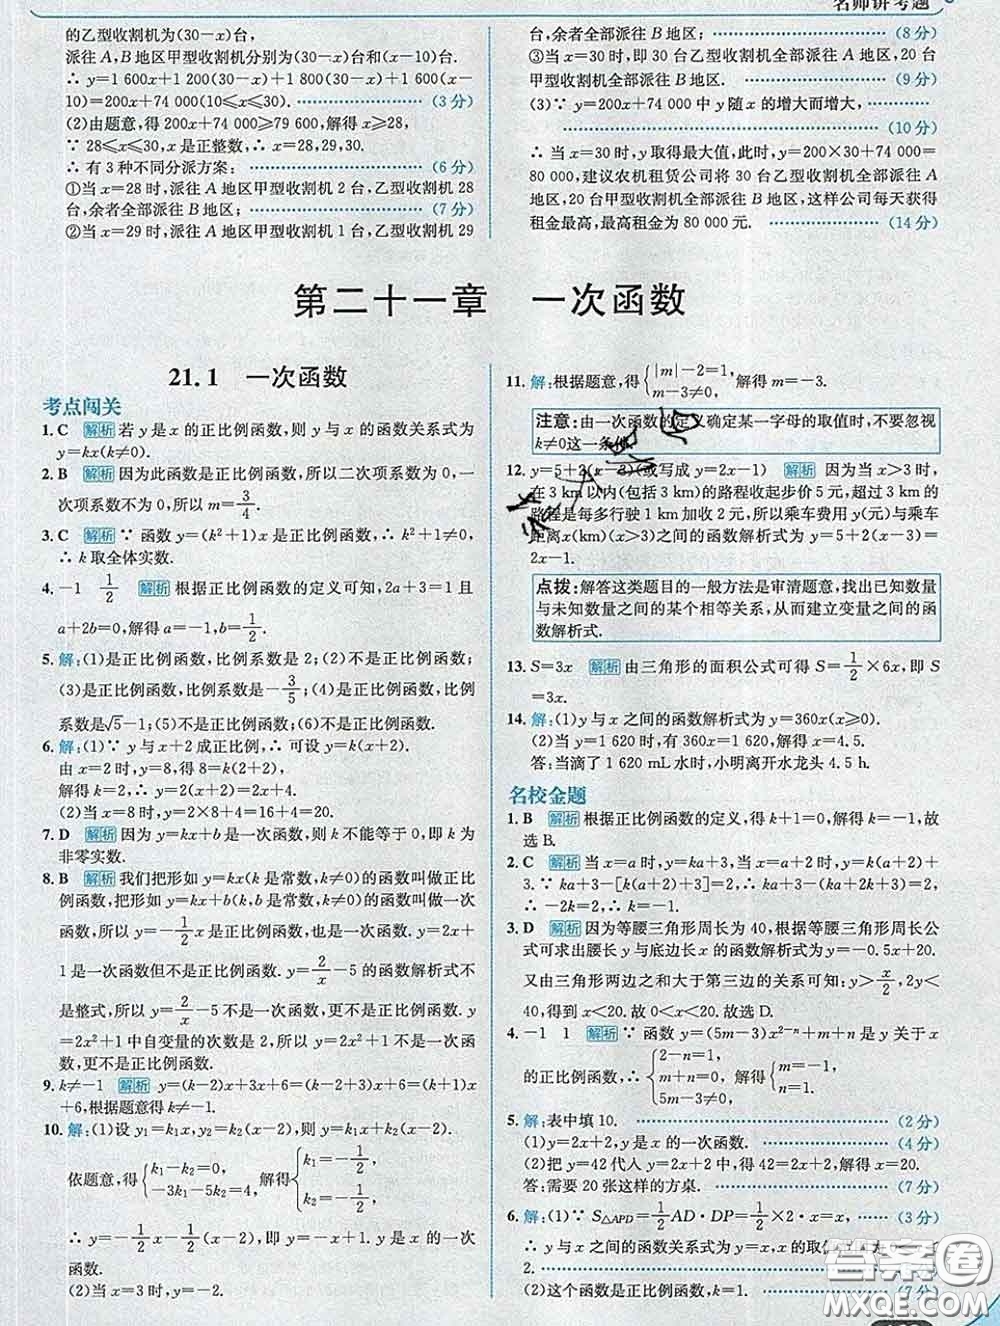 名师讲考题
的乙型收割机为(30－x)台,
派往A、B地区甲型收割机分别为(30－x)台和(x－10)台.
∴ y=1 600x+1 200(30－x)+1 800(30－x)+1 600(x－
10)=200x+74 000(10≤x≤30). (3分)
(2)由题意,得200x+74 000≥79 600,解得x≥28,
∵ 28≤x≤30,x是正整数,∴ x=28,29,30.
∴ 有3种不同分派方案: (6分)
①当x=28时,派往A地区甲型收割机2台,乙型收割机28
台,余者全部派往B地区; (7分)
②当x=29时,派往A地区甲型收割机1台,乙型收割机29
台,余者全部派往B地区; (8分)
③当x=30时,即30台乙型收割机全部派往A地区,20台
甲型收割机全部派往B地区. (9分)
(3)∵ y=200x+74 000中y随x的增大而增大,
(10分)
∴ 当x=30时,y取得最大值,此时,y=200×30+74 000=
80 000,建议农机租赁公司将30台乙型收割机全部派往A
地区,20台甲型收割机全部派往B地区,这样公司每天获得
租金最高,最高租金为80 000元. (14分)
第二十一章 一次函数
21.1 一次函数
考点闯关
1. C 解析 若y是x的正比例函数,则y与x的函数关系式为
y=kx(k≠0).
2. B 解析 因为此函数是正比例函数,所以二次项系数为0,一
次项系数不为0,所以m=3/4.
3. C 解析 ∵ 函数y=(k²+1)x是正比例函数,∴ k²+1≠0,
∴ k取全体实数.
4. －1 1/2 解析 根据正比例函数的定义可知,2a+3=1且
a+2b=0,解得a=－1,b=1/2.
5. 解:(1)是正比例函数,比例系数是2;(2)不是正比例函数;
(3)是正比例函数,比例系数是－3/5;(4)是正比例函数,比例
系数是√5－1;(5)不是正比例函数;(6)不是正比例函数.
6. 解:(1)∵ y与x+2成正比例,∴ 可设y=k(x+2).
由x=2时,y=8,得8=k(2+2),
解得k=2,∴ y=2(x+2)=2x+4.
(2)当x=8时,y=2×8+4=16+4=20.
7. D 解析 因为y=kx+b是一次函数,则k不能等于0,即k为
非零实数.
8. B 解析 我们把形如y=kx(k是常数,k≠0)的函数叫做正比
例函数,把形如y=kx+b(k,b是常数,k≠0)的函数叫做一次
函数,所以y=－1/2x是正比例函数,也是一次函数.y=2x+
1是一次函数但不是正比例函数.y=2/x－5的函数解析式不
是整式,所以y=2/x－5不是一次函数,更不是正比例函数.y
=2x²+1中自变量的次数是2,所以y=2x²+1不是一次函
数,更不是正比例函数.
9. k≠－1 解析 y=(k－2)x+3x+6=(k－2+3)x+6=(k+1)x
+6,根据题意得k≠－1.
10. 解:(1)设y₁=k₁x,y₂=k₂(x－2),则y=k₁x－k₂(x－2).
依题意,得{k₁－k₂=0, －3k₁－5k₂=4, 解得{k₁=－1/2, k₂=－1/2,
∴ y=－1/2x－1/2x－1,即y=－x－1.∴ y是x的一次
函数.
(2)当x=3时,y=－4.
11. 解:根据题意,得{|m|－2=1, m－3≠0, 解得m=－3.
注意:由一次函数的定义确定某一字母的取值时,不要忽视
k≠0这一条件.
12. y=5+2(x－3)(或写成y=2x－1) 解析 因为当x＞3时,
在3 km以内(包括3 km)的路程收起步价5元,超过3 km的
路程是每多行驶1 km加收2元,所以乘车费用y(元)与乘车
距离x(km)(x＞3)之间的函数解析式为y=5+2(x－3)=
2x－1.
点拨:解答这类题目的一般方法是审清题意,找出已知数量
与未知数量之间的某个相等关系,从而建立变量之间的函
数解析式.
13. S=3x 解析 由三角形的面积公式可得S=1/2×6x,即S
=3x.
14. 解:(1)y与x之间的函数解析式为y=360x(x≥0).
(2)当y=1 620时,有360x=1 620,解得x=4.5.
答:当滴了1 620 mL水时,小明离开水龙头4.5 h.
名校金题
1. B 解析 根据正比例函数的定义,得k+1=0,解得k=－1,故
选B.
2. C 解析 当x=a时,y=ka+3,当x=a+2时,y=k(a+2)+
3.∵ ka+3－[k(a+2)+3]=2,∴ ka+3－ka－2k－3=2,
∴ －2k=2,∴ k=－1.
3. D 解析 因为等腰三角形周长为40,根据等腰三角形周长公
式可求出腰长y与底边长x的函数解析式为y=－0.5x+20.
又由三角形两边之和大于第三边的关系可知:y＞x/2,2y＜
40,得到x＜20.故0＜x＜20.故选D.
4. －1 1 解析 ∵ 函数y=(5m－3)x²⁻ⁿ+m+n是y关于x
的正比例函数,∴{2－n=1, m+n=0, 5m－3≠0, 解得{m=－1, n=1.
5. 解:表中填10. (2分)
(1)y=2x+2,y是x的一次函数. (4分)
(2)把y=42代入y=2x+2中,得42=2x+2,解得x=20.
答:需要20张这样的方桌. (7分)
6. 解:(1)∵ S△APD=1/2AD·DP=1/2×2·x=x, (3分)
∴ y与x之间的函数关系式为y=x,x的取值
2.
(2)这个函数是正比例函数,比例系数k=1.
答案卷
MXQE.COM